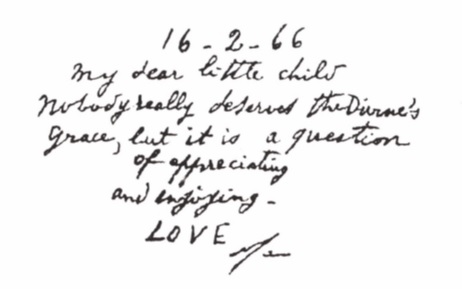 16 - 2 - 66
My dear little child
Nobody really deserves the Divine's
Grace, but it is a question
of appreciating
and enjoying -
LOVE